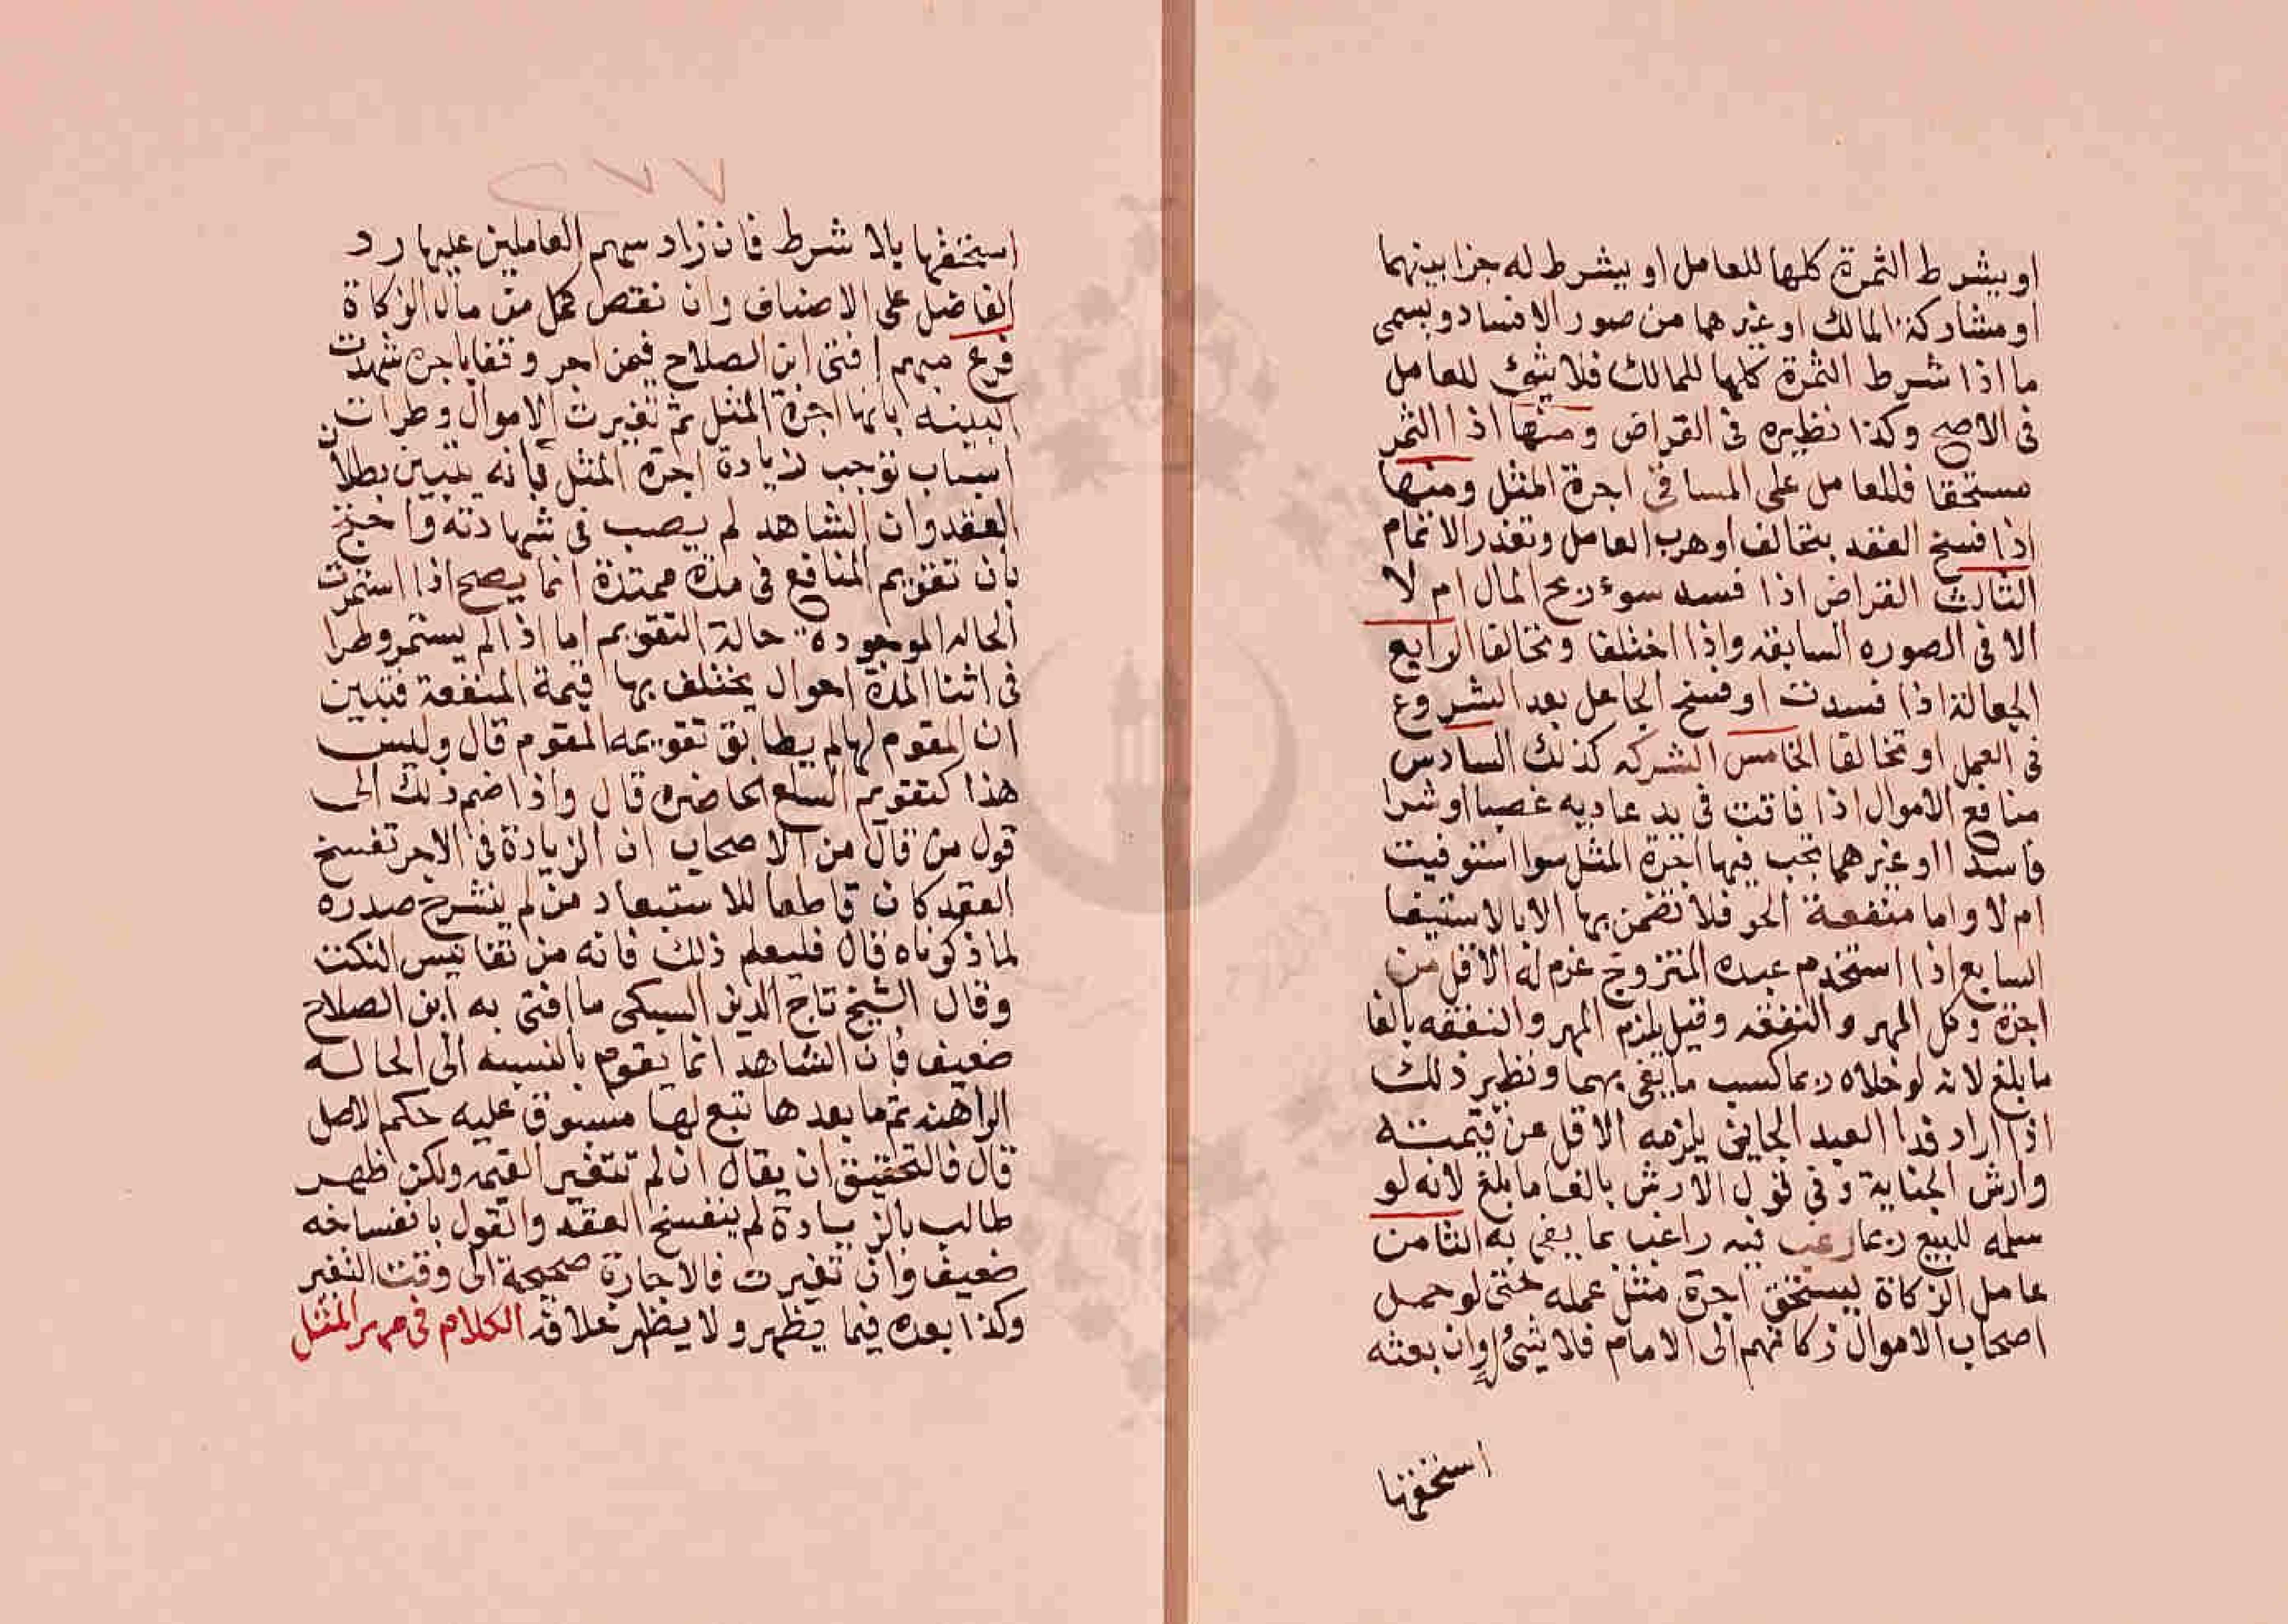 او بيشرط الثمرة كلها للعامل او بيشرط له جزا بينهما
او مشاركة المالك او غيرهما من صور الافساد ويسمى
ما اذا شرط الثمرة كلها للمالك فلا شئ للعامل
فى الاصح وكذا نظيره فى القراض ومنها اذا الثمر
مستحقا فللعامل على المساقى اجرة المثل ومنها
اذا فسخ العقد بتحالف او هرب العامل وتعذر الاتمام
الثالث القراض اذا فسد سوء ربح المال ام لا
الا فى الصوره السابقه واذا اختلفا وتحالفا الرابع
الجعالة اذا فسدت او فسخ الجاعل بعد الشروع
فى العمل او تحالفا الخامس الشركه كذلك السادس
منافع الاموال اذا فاتت فى يد عاديه غصبا او شرا
فاسدا او غيرهما تجب فيها اجرة المثل سوا استوفيت
ام لا واما منفعة الحر فلا تضمن بها الا بالاستيفا
السابع اذا استخدم عبده المتزوج غرم له الاقل من
اجرة وكل المهر والنفقه وقيل يلزم المهر والنفقه بالغا
ما بلغ لانه لو خلاه ربما كسب ما يفى بهما ونظير ذلك
اذا اراد فدا العبد الجانى يلزمه الاقل من قيمته
وارش الجناية وفى قول الارش بالغا ما بلغ لانه لو
سلمه للبيع ربما رغب فيه راغب بما يفى به الثامن
عامل الزكاة يستحق اجرة مثل عمله حتى لو حمل
اصحاب الاموال زكاتهم الى الامام فلا شئ له وان بعثه
استحقها
استحقها بلا شرط فان زاد سهم العاملين عليها رد
الفاضل على الاصناف وان نقص كمل من مال الزكاة
فرع مهم افتى ابن الصلاح فيمن اجر وقفا باجرة شهدت
البينه بانها اجرة المثل ثم تغيرت الاموال وطرات
اسباب توجب زيادة اجرة المثل فانه يتبين بطلان
العقد وان الشاهد لم يصب فى شهادته واحتج
بان تقويم المنافع فى مدة ممتدة انما يصح اذا استمرت
الحاله الموجودة حالة التقويم اما اذا لم يستمر وطرا
فى اثنا المدة احوال يختلف بها قيمة المنفعة فتبين
ان المقوم لها لم يطابق تقويمه المقوم قال وليس
هذا كتقويم السلع الحاضره قال واذا ضم ذلك الى
قول من قال من الاصحاب ان الزيادة فى الاجر تفسخ
العقد كان قاطعا للاستبعاد من لم ينشرح صدره
لما ذكرناه قال فليعلم ذلك فانه من نفائيس النكت
وقال الشيخ تاج الدين السبكى ما افتى به ابن الصلاح
ضعيف فان الشاهد انما يقوم بالنسبه الى الحاله
الراهنه ثم ما بعدها تبع لها مسبوق عليه حكم الاصل
قال فالتحقيق ان يقال ان لم تتغير القيمه ولكن ظهر
طالب بالزيادة لم ينفسخ العقد والقول بانفساخه
ضعيف وان تغيرت فالاجارة صحيحة الى وقت التغير
وكذا بعده فيما يظهر ولا يظهر خلافه الكلام فى مهر المثل